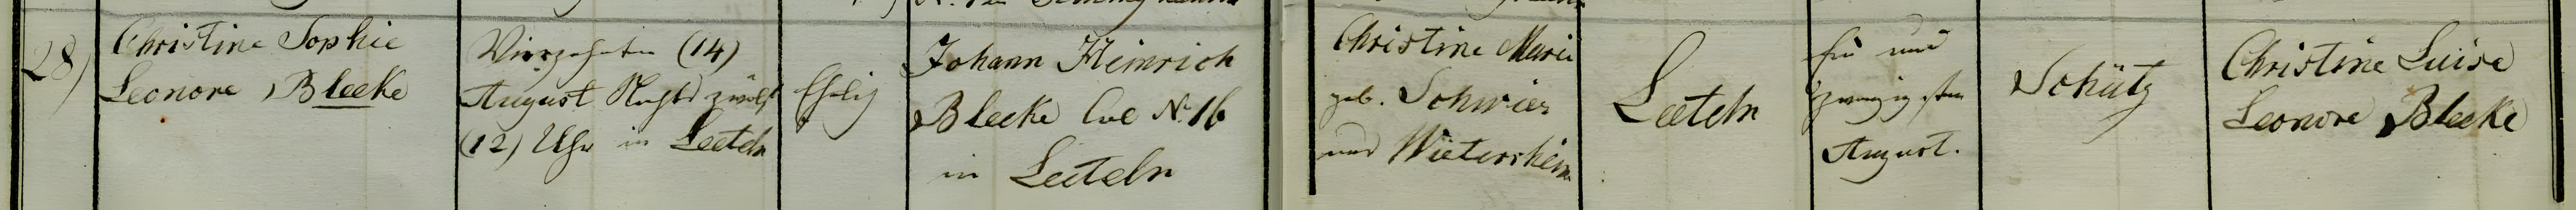 28)
Christine Sophie
Leonore Bleeke
Vierzehnten (14)
August Nachts zwölf
(12) Uhr in Leeteln
Ehelig
Johann Heinrich
Bleeke Col No. 16
in Leeteln
Christine Marie
geb. Schwier
aus Wietersheim
Leeteln
Ein und
zwanzigsten
August.
Schütz
Christine Luise
Leonore Bleeke